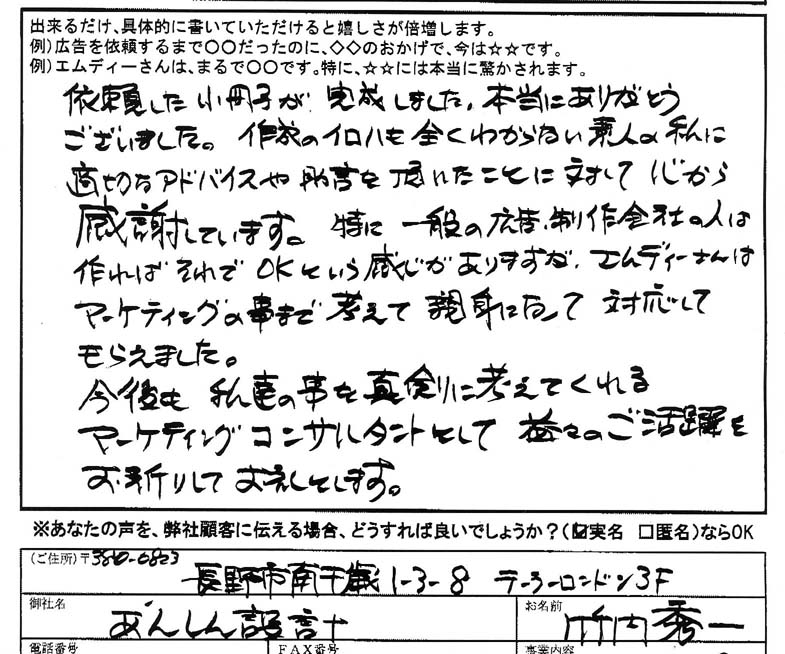 出来るだけ、具体的に書いていただけると嬉しさが倍増します。
例)広告を依頼するまで〇〇だったのに、◇◇のおかげで、今は☆☆です。
例)エムディーさんは、まるで〇〇です。特に、☆☆には本当に驚かされます。
依頼した小冊子が完成しました。本当にありがとう
ございました。作成のイロハも全くわからない素人の私に
適切なアドバイスや助言を頂いたことに対して心から
感謝しています。特に一般の広告・制作会社の人は
作ればそれでOKという感じがありますが、エムディーさんは
マーケティングの事まで考えて親身になって対応して
もらえました。
今後も私達の事を真剣に考えてくれる
マーケティングコンサルタントとして益々のご活躍を
お祈りしてお礼とします。
※あなたの声を、弊社顧客に伝える場合、どうすれば良いでしょうか?(☑実名 □匿名)ならOK
(ご住所)〒380-0823
長野市南千歳1-3-8 テーラーロンドン3F
御社名 あんしん設計 お名前 竹内秀一
電話番号 FAX番号 事業内容